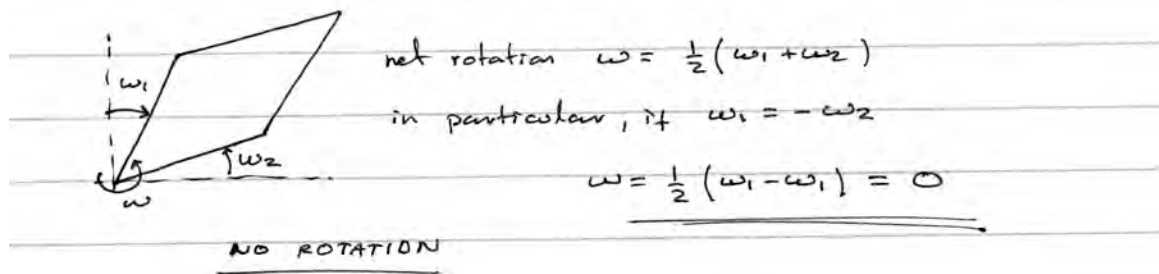 net rotation ω = ½(ω₁ + ω₂)
ω₁
in particular, if ω₁ = -ω₂
ω₂
ω = ½ (ω₁ - ω₁) = 0
ω
NO ROTATION